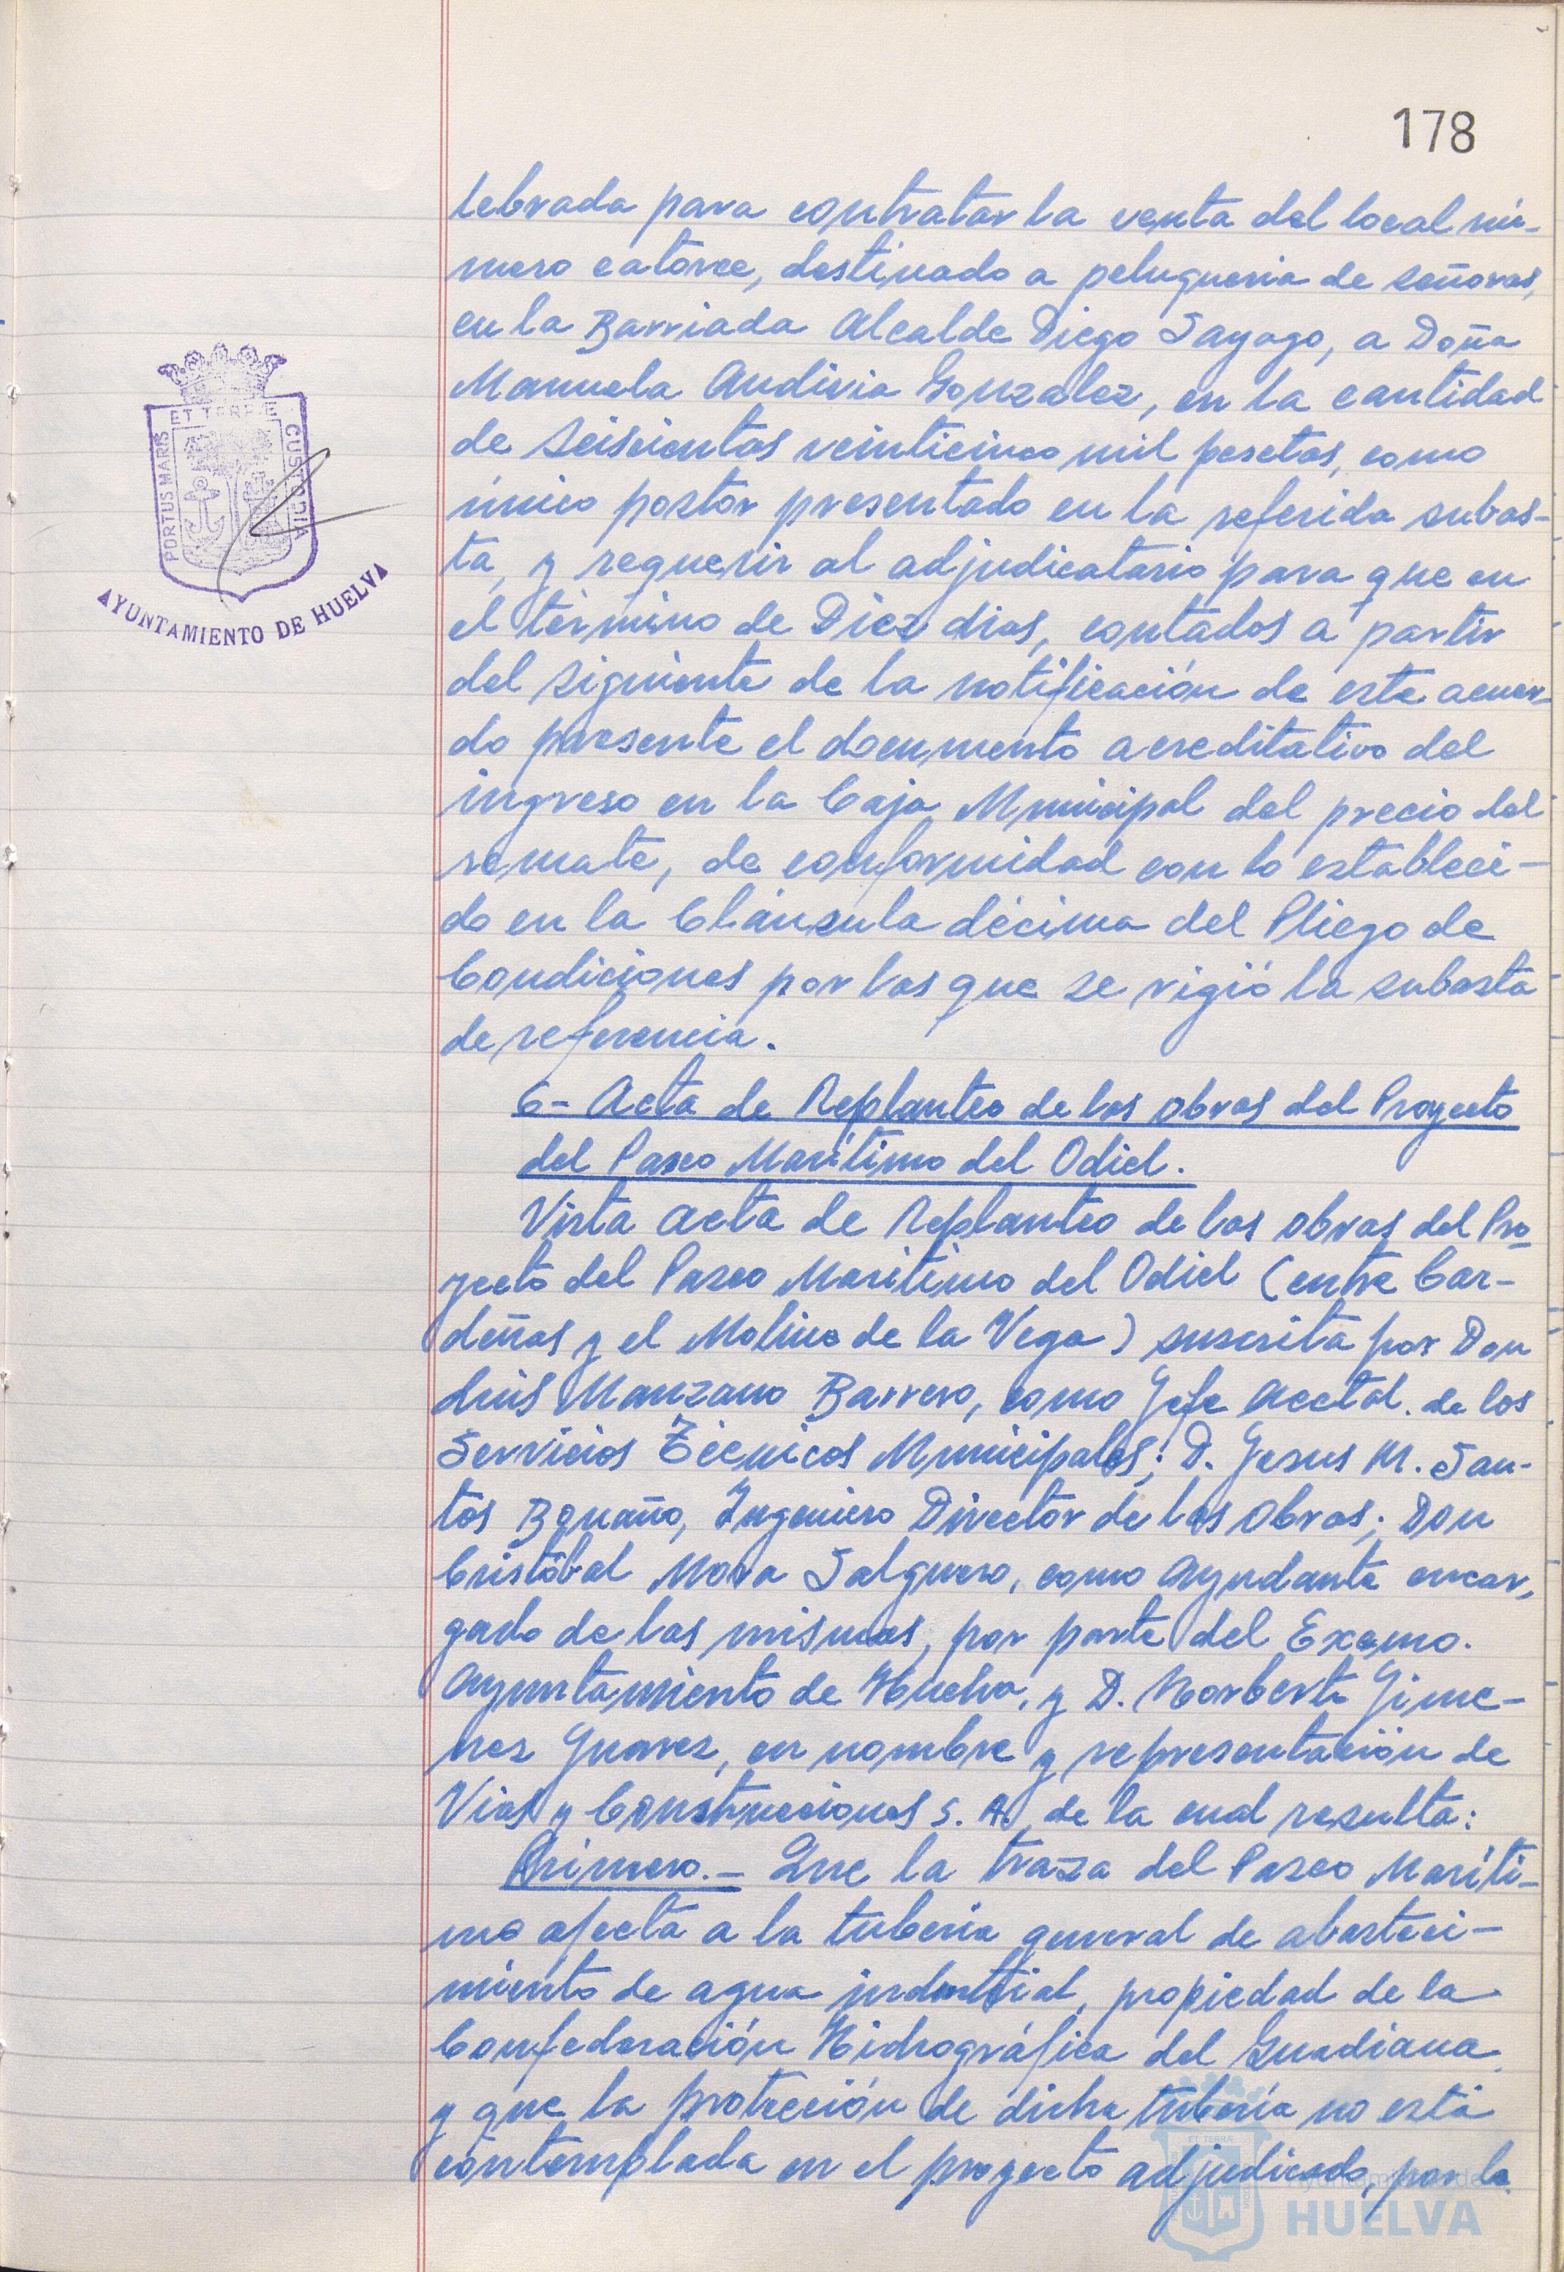 178
lebrada para contratar la venta del local nú-
mero catorce, destinado a peluqueria de señoras,
en la Barriada Alcalde Diego Sayago, a Doña
Manuela Audivia Gonzalez, en la cantidad
de Seiscientas veinticinco mil pesetas, como
único postor presentado en la referida subas-
ta, y requerir al adjudicatario para que en
el término de Diez dias, contados a partir
del siguiente de la notificación de este acuer-
do presente el documento acreditativo del
ingreso en la Caja Municipal del precio del
remate, de conformidad con lo estableci-
do en la Cláusula décima del Pliego de
Condiciones por las que se rigió la subasta
de referencia.
6- Acta de Replanteo de las obras del Proyecto
del Paseo Marítimo del Odiel.
Vista acta de Replanteo de las obras del Pro-
yecto del Paseo Maritimo del Odiel (entre Car-
deñas y el Molino de la Vega) suscrita por Don
Luis Manzano Barrero, como Jefe Acctal. de los
Servicios Técnicos Municipales; D. Jesus M. San-
tos Bonaño, Ingeniero Director de las Obras; Don
Cristóbal Mora Salguero, como Ayudante encar-
gado de las mismas, por parte del Excmo.
Ayuntamiento de Huelva, y D. Norberto Jime-
nez Juarez, en nombre y representación de
Vias y Construcciones S. A. de la cual resulta:
Primero.- Que la traza del Paseo Maríti-
mo afecta a la tuberia general de abasteci-
miento de agua industrial, propiedad de la
Confederación Hidrográfica del Guadiana
y que la protección de dicha tubería no está
contemplada en el proyecto adjudicado, por lo
PORTUS MARIS
ET TERRAE
CUSTODIA
AYUNTAMIENTO DE HUELVA
ET TERRAE
Ayuntamiento de
HUELVA